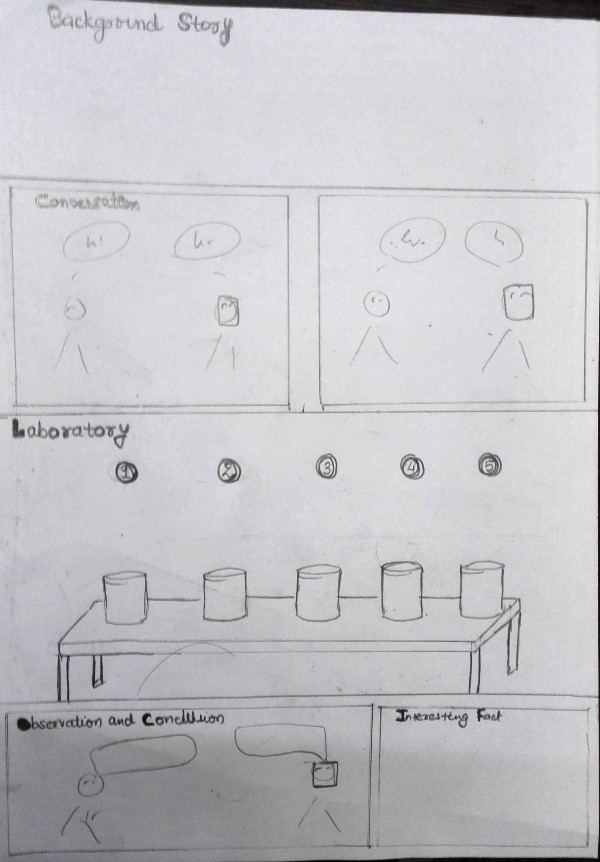 Background Story
Conversation
hi
hi
Laboratory
1 2 3 4 5
Observation and Conclusion
Interesting Fact